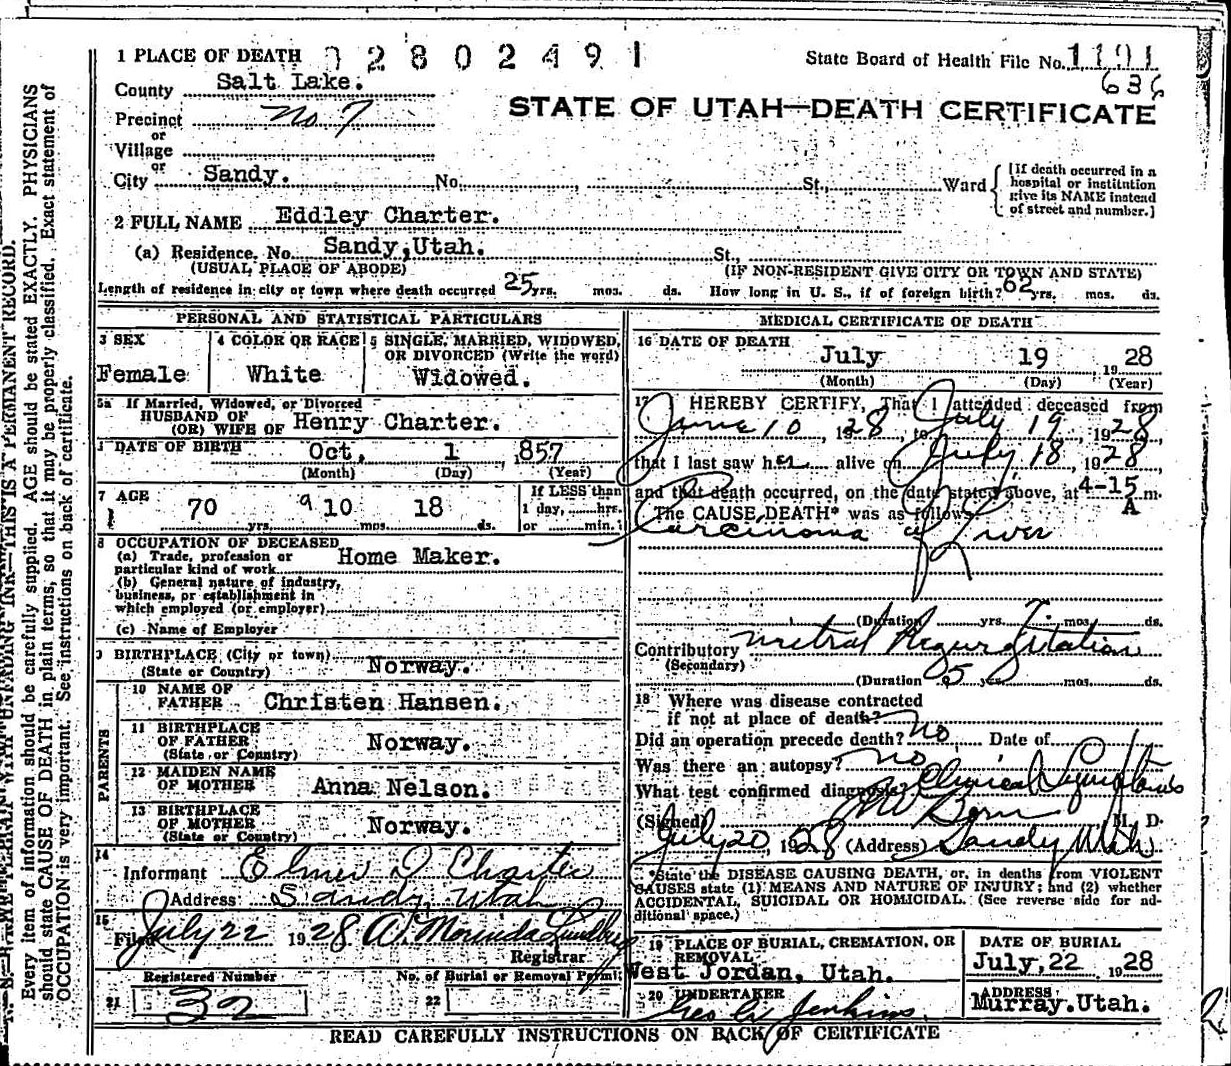 1 PLACE OF DEATH 02802491 State Board of Health File No. 1191
County Salt Lake. 636
STATE OF UTAH—DEATH CERTIFICATE
Precinct No 7
or
Village
or
City Sandy. No. , St., Ward
[If death occurred in a
hospital or institution
give its NAME instead
of street and number.]
2 FULL NAME Eddley Charter.
(a) Residence. No. Sandy,Utah. St.,
(USUAL PLACE OF ABODE) (IF NON-RESIDENT GIVE CITY OR TOWN AND STATE)
Length of residence in city or town where death occurred 25 yrs. mos. ds. How long in U. S., if of foreign birth? 62 yrs. mos. ds.
PERSONAL AND STATISTICAL PARTICULARS
3 SEX
Female
4 COLOR OR RACE
White
5 SINGLE, MARRIED, WIDOWED,
OR DIVORCED (Write the word)
Widowed.
5a If Married, Widowed, or Divorced
HUSBAND OF
(OR) WIFE OF Henry Charter.
DATE OF BIRTH Oct. 1 ,857
(Month) (Day) (Year)
7 AGE
70 yrs. 9 10 mos. 18 ds.
If LESS than
1 day, hrs.
or min.
8 OCCUPATION OF DECEASED
(a) Trade, profession or
particular kind of work Home Maker.
(b) General nature of industry,
business, or establishment in
which employed (or employer)
(c) Name of Employer
9 BIRTHPLACE (City or town)
(State or Country) Norway.
PARENTS
10 NAME OF
FATHER Christen Hansen.
11 BIRTHPLACE
OF FATHER
(State or Country) Norway.
12 MAIDEN NAME
OF MOTHER Anna Nelson.
13 BIRTHPLACE
OF MOTHER
(State or Country) Norway.
14
Informant Elmer D Charter
Address Sandy, Utah
15
Filed July 22 1928 A. Morinda Lundberg
Registrar
Registered Number No. of Burial or Removal Permit
21 32 22
MEDICAL CERTIFICATE OF DEATH
16 DATE OF DEATH
July 19 1928
(Month) (Day) (Year)
17 I HEREBY CERTIFY, That I attended deceased from
June 10, 1928, to July 19, 1928,
that I last saw her alive on July 18, 1928
and that death occurred, on the date stated above, at 4-15 m.
A
The CAUSE DEATH* was as follows:
Carcinoma of Liver
(Duration yrs. mos. ds.
Contributory Metral Regurgitation
(Secondary)
(Duration 5 yrs. mos. ds.
18 Where was disease contracted
if not at place of death?
Did an operation precede death? No Date of
Was there an autopsy? no
What test confirmed diagnosis? Clinical Symptoms
(Signed) M. D.
July 20, 1928 (Address) Sandy Utah
*State the DISEASE CAUSING DEATH, or, in deaths from VIOLENT
CAUSES state (1) MEANS AND NATURE OF INJURY; and (2) whether
ACCIDENTAL, SUICIDAL OR HOMICIDAL. (See reverse side for ad-
ditional space.)
19 PLACE OF BURIAL, CREMATION, OR
REMOVAL
West Jordan, Utah.
DATE OF BURIAL
July,22 1928
20 UNDERTAKER
Geo A Jenkins.
ADDRESS
Murray.Utah.
READ CAREFULLY INSTRUCTIONS ON BACK OF CERTIFICATE
N. B.—WRITE PLAINLY WITH UNFADING INK—THIS IS A PERMANENT RECORD.
Every item of information should be carefully supplied. AGE should be stated EXACTLY. PHYSICIANS
should state CAUSE OF DEATH in plain terms, so that it may be properly classified. Exact statement of
OCCUPATION is very important. See instructions on back of certificate.